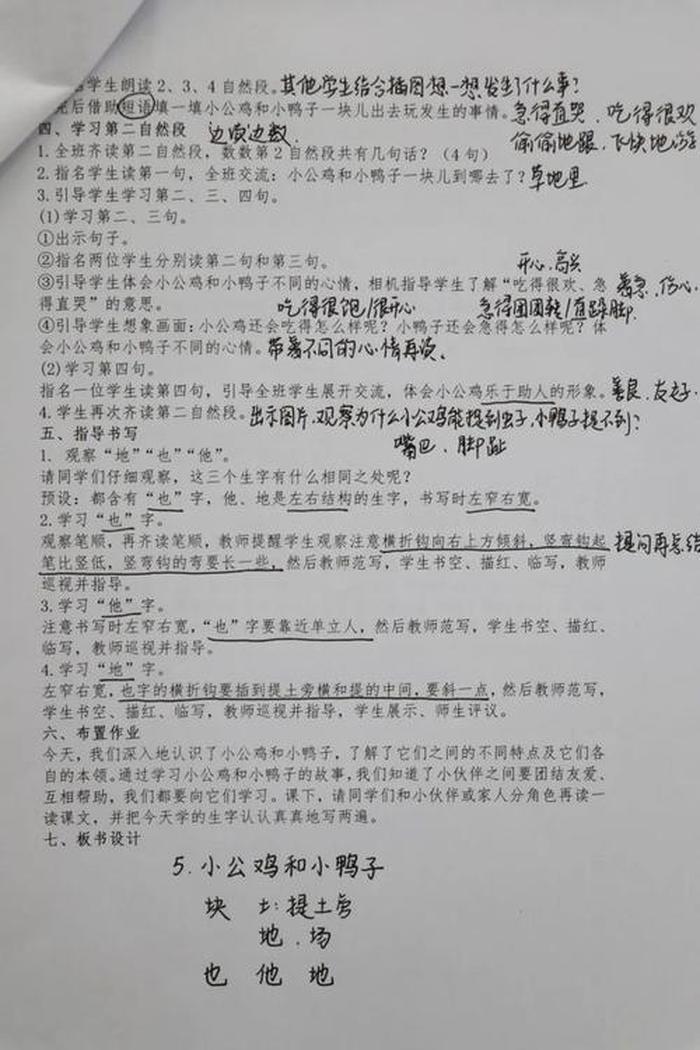 学生朗读2、3、4自然段。其他学生结合插图想一想发生了什么事?
完后借助短语填一填小公鸡和小鸭子一块儿出去玩发生的事情。急得直哭、吃得很欢
四、学习第二自然段 边读边数、 偷偷地跟、飞快地游
1.全班齐读第二自然段,数数第2自然段共有几句话?(4句)
2.指名学生读第一句,全班交流:小公鸡和小鸭子一块儿到哪去了?草地里
3.引导学生学习第二、三、四句。
(1)学习第二、三句。
①出示句子。
②指名两位学生分别读第二句和第三句。 开心、高兴
③引导学生体会小公鸡和小鸭子不同的心情,相机指导学生了解“吃得很欢、急 着急、伤心.
得直哭”的意思。 吃得很饱/很开心 急得团团转/直跺脚.
④引导学生想象画面:小公鸡还会吃得怎么样呢?小鸭子还会急得怎么样呢?体
会小公鸡和小鸭子不同的心情。带着不同的心情再读、
(2)学习第四句。
指名一位学生读第四句,引导全班学生展开交流,体会小公鸡乐于助人的形象。善良、友好.
4.学生再次齐读第二自然段。出示图片,观察为什么小公鸡能捉到虫子,小鸭子捉不到?
五、指导书写 嘴巴、脚趾
1. 观察“地”“也”“他”。
请同学们仔细观察,这三个生字有什么相同之处呢?
预设:都含有“也”字,他、地是左右结构的生字,书写时左窄右宽。
2.学习“也”字。
观察笔顺,再齐读笔顺,教师提醒学生观察注意横折钩向右上方倾斜,竖弯钩起 提问再总结
笔比竖低,竖弯钩的弯要长一些,然后教师范写,学生书空、描红、临写,教师
巡视并指导。
3.学习“他”字。
注意书写时左窄右宽,“也”字要靠近单立人,然后教师范写,学生书空、描红、
临写,教师巡视并指导。
4.学习“地”字。
左窄右宽,也字的横折钩要插到提土旁横和提的中间,要斜一点,然后教师范写,
学生书空、描红、临写,教师巡视并指导,学生展示、师生评议。
六、布置作业
今天,我们深入地认识了小公鸡和小鸭子,了解了它们之间的不同特点及它们各
自的本领。通过学习小公鸡和小鸭子的故事,我们知道了小伙伴之间要团结友爱、
互相帮助,我们都要向它们学习。课下,请同学们和小伙伴或家人分角色再读一
读课文,并把今天学的生字认认真真地写两遍。
七、板书设计
5.小公鸡和小鸭子
块 土:提土旁
地、场
也 他 地